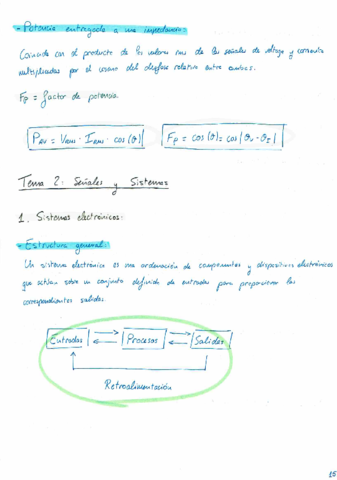 - Potencia entregada a una impedancia:
Coincide con el producto de los valores rms de las señales de voltaje y corriente
multiplicadas por el coseno del desfase relativo entre ambas.
Fp = factor de potencia.
PAV = Vrms · Irms · cos(θ)
Fp = cos(θ) = cos(θv - θI)
Tema 2: Señales y Sistemas
1. Sistemas electrónicos:
- Estructura general:
Un sistema electrónico es una ordenación de componentes y dispositivos electrónicos
que actúan sobre un conjunto definido de entradas para proporcionar las
correspondientes salidas.
Entradas Procesos Salidas
Retroalimentación
15